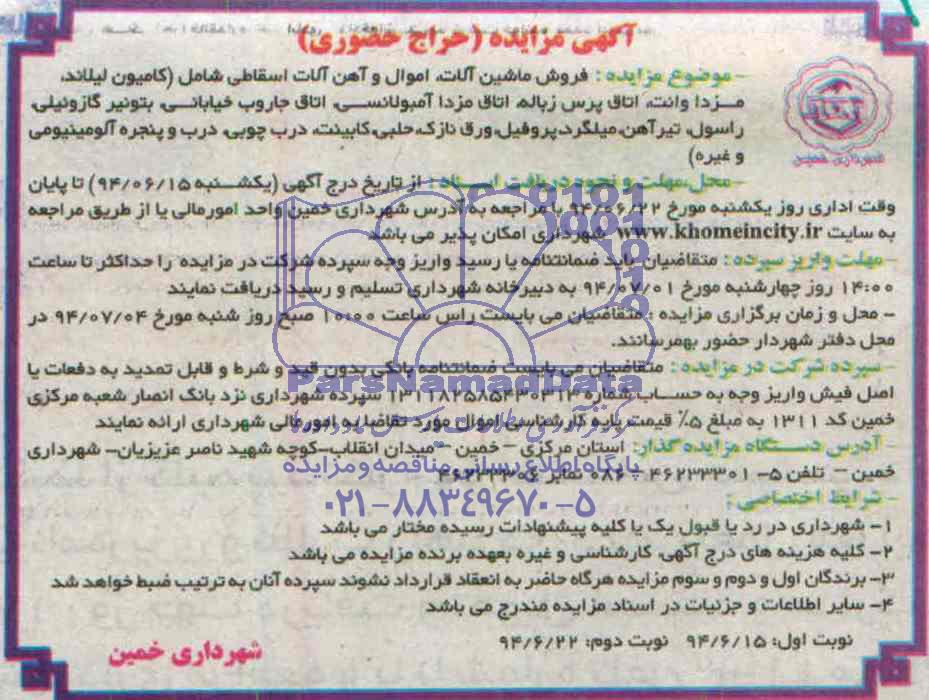 آگهی مزایده (حراج حضوری)
- موضوع مزایده : فروش ماشین آلات، اموال و آهن آلات اسقاطی شامل (کامیون لیلاند،
مزدا وانت، اتاق پرس زباله، اتاق مزدا آمبولانسی، اتاق جاروب خیابانی، بتونیر گازوئیلی،
راسول، تیرآهن،میلگرد،پروفیل،ورق نازک،حلبی،کابینت، درب چوبی، درب و پنجره آلومینیومی
و غیره)
شهرداری خمین
- محل،مهلت و نحوه دریافت اسناد : از تاریخ درج آگهی (یکشنبه ۹۴/۰۶/۱۵) تا پایان
وقت اداری روز یکشنبه مورخ ۹۴/۰۶/۲۲ با مراجعه به آدرس شهرداری خمین واحد امورمالی یا از طریق مراجعه
به سایت www.khomeincity.ir شهرداری امکان پذیر می باشد.
- مهلت واریز سپرده : متقاضیان باید ضمانتنامه یا رسید واریز وجه سپرده شرکت در مزایده را حداکثر تا ساعت
۱۴:۰۰ روز چهارشنبه مورخ ۹۴/۰۷/۰۱ به دبیرخانه شهرداری تسلیم و رسید دریافت نمایند
- محل و زمان برگزاری مزایده : متقاضیان می بایست راس ساعت ۱۰:۰۰ صبح روز شنبه مورخ ۹۴/۰۷/۰۴ در
محل دفتر شهردار حضور بهمرسانند.
- سپرده شرکت در مزایده : متقاضیان می بایست ضمانتنامه بانکی بدون قید و شرط و قابل تمدید به دفعات یا
اصل فیش واریز وجه به حساب شماره ۱۳۱۱۸۲۵۸۵۴۳۰۳۱۳ سپرده شهرداری نزد بانک انصار شعبه مرکزی
خمین کد ۱۳۱۱ به مبلغ ۵٪ قیمت پایه کارشناسی اموال مورد تقاضا به امورمالی شهرداری ارائه نمایند
- آدرس دستگاه مزایده گذار: استان مرکزی – خمین – میدان انقلاب-کوچه شهید ناصر عزیزیان- شهرداری
خمین – تلفن ۵-۴۶۲۳۳۳۰۱-۰۸۶ نمابر ۴۶۲۳۳۳۰۶
- شرایط اختصاصی :
۱- شهرداری در رد یا قبول یک یا کلیه پیشنهادات رسیده مختار می باشد
۲- کلیه هزینه های درج آگهی، کارشناسی و غیره بعهده برنده مزایده می باشد
۳- برندگان اول و دوم و سوم مزایده هرگاه حاضر به انعقاد قرارداد نشوند سپرده آنان به ترتیب ضبط خواهد شد
۴- سایر اطلاعات و جزئیات در اسناد مزایده مندرج می باشد
نوبت اول: ۹۴/۶/۱۵ نوبت دوم: ۹۴/۶/۲۲
شهرداری خمین
ParsNamadData
پایگاه اطلاع رسانی مناقصه و مزایده
۰۲۱-۸۸۳۴۹۶۷۰-۵